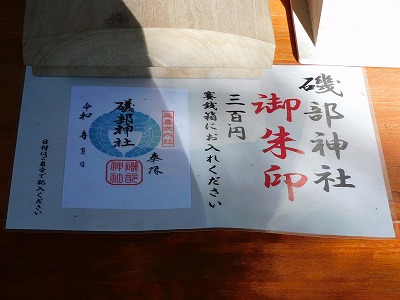 磯部神社
御朱印
三百円
賽銭箱にお入れください
奉拝
延喜式内社
磯部神社
磯部
神社
令和 年 月 日
日付はご自分で記入ください